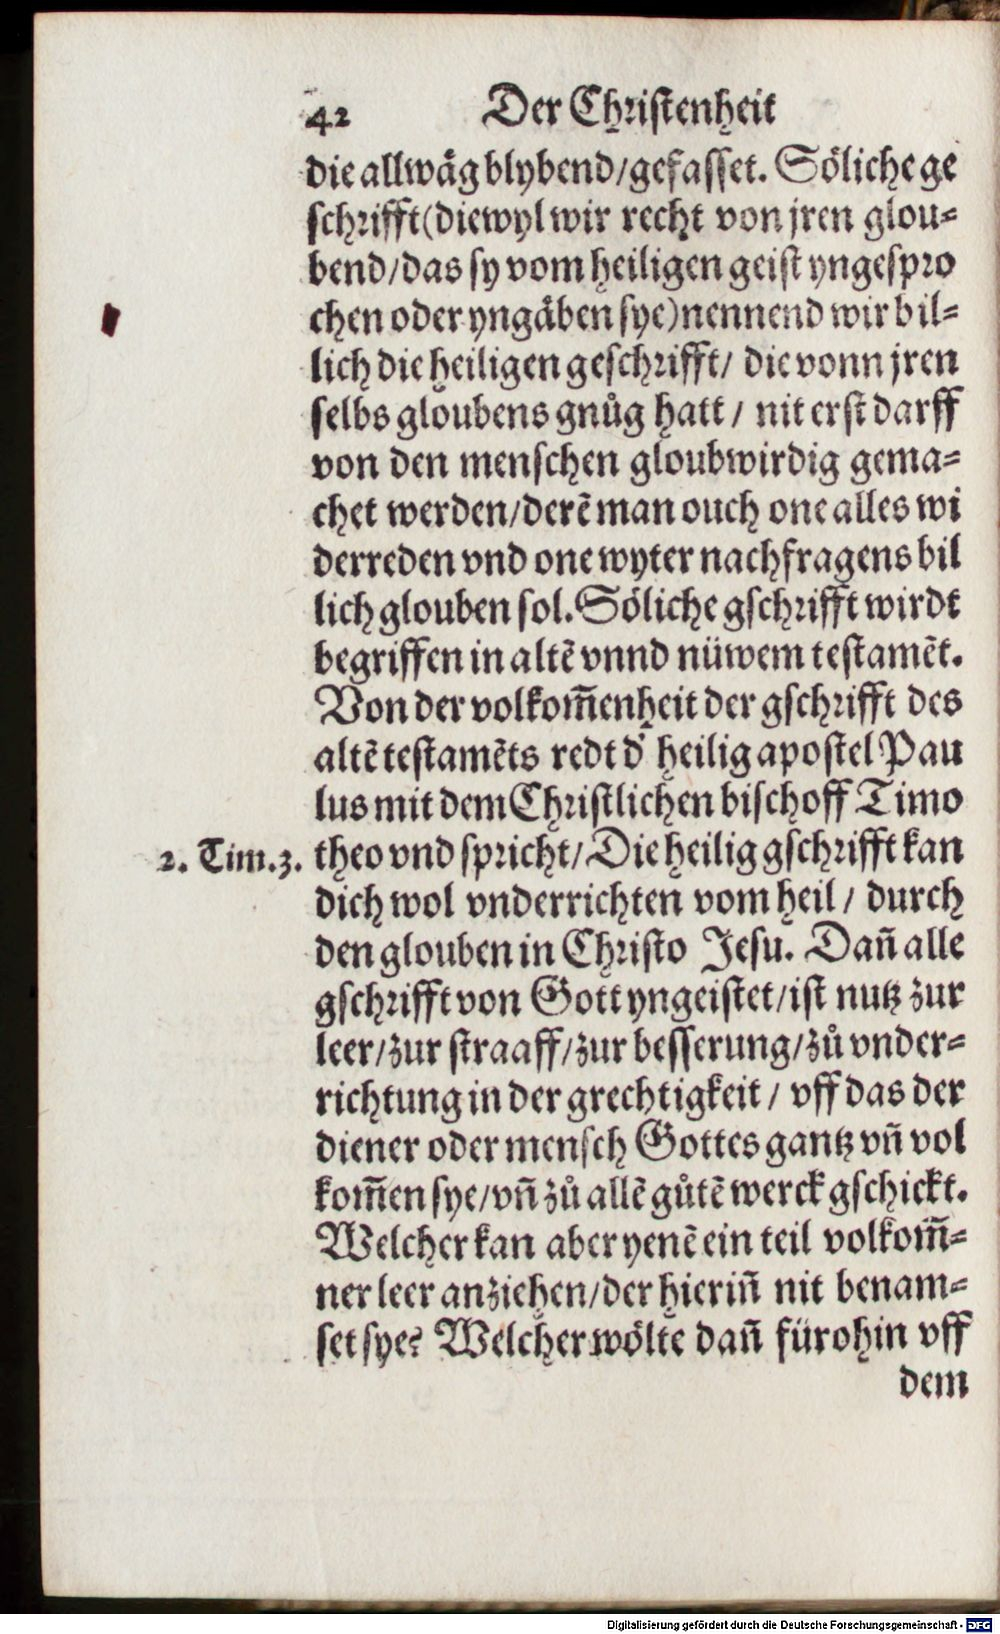 42 Der Christenheit
die allwäg blybend/gefasset. Söliche ge
schrifft(diewyl wir recht von jren glou⸗
bend/das sy vom heiligen geist yngespro
chen oder yngäben sye)nennend wir bil⸗
lich die heiligen geschrifft/ die vonn jren
selbs gloubens gnůg hatt / nit erst darff
von den menschen gloubwirdig gema⸗
chet werden/derē man ouch one alles wi
derreden vnd one wyter nachfragens bil
lich glouben sol. Söliche gschrifft wirdt
begriffen in altē vnnd nüwem testamēt.
Von der volkom̄enheit der gschrifft des
altē testamēts redt d' heilig apostel Pau
lus mit dem Christlichen bischoff Timo
2. Tim.3. theo vnd spricht/ Die heilig gschrifft kan
dich wol vnderrichten vom heil / durch
den glouben in Christo Jesu. Dañ alle
gschrifft von Gott yngeistet/ist nutz zur
leer/zur straaff/zur besserung/zů vnder⸗
richtung in der grechtigkeit / vff das der
diener oder mensch Gottes gantz vñ vol
kom̄en sye/vñ zů allē gůtē werck gschickt.
Welcher kan aber yenē ein teil volkom̄⸗
ner leer anziehen/der hieriñ nit benam⸗
set sye? Welcher wölte dañ fürohin vff
dem
Digitalisierung gefördert durch die Deutsche Forschungsgemeinschaft - DFG